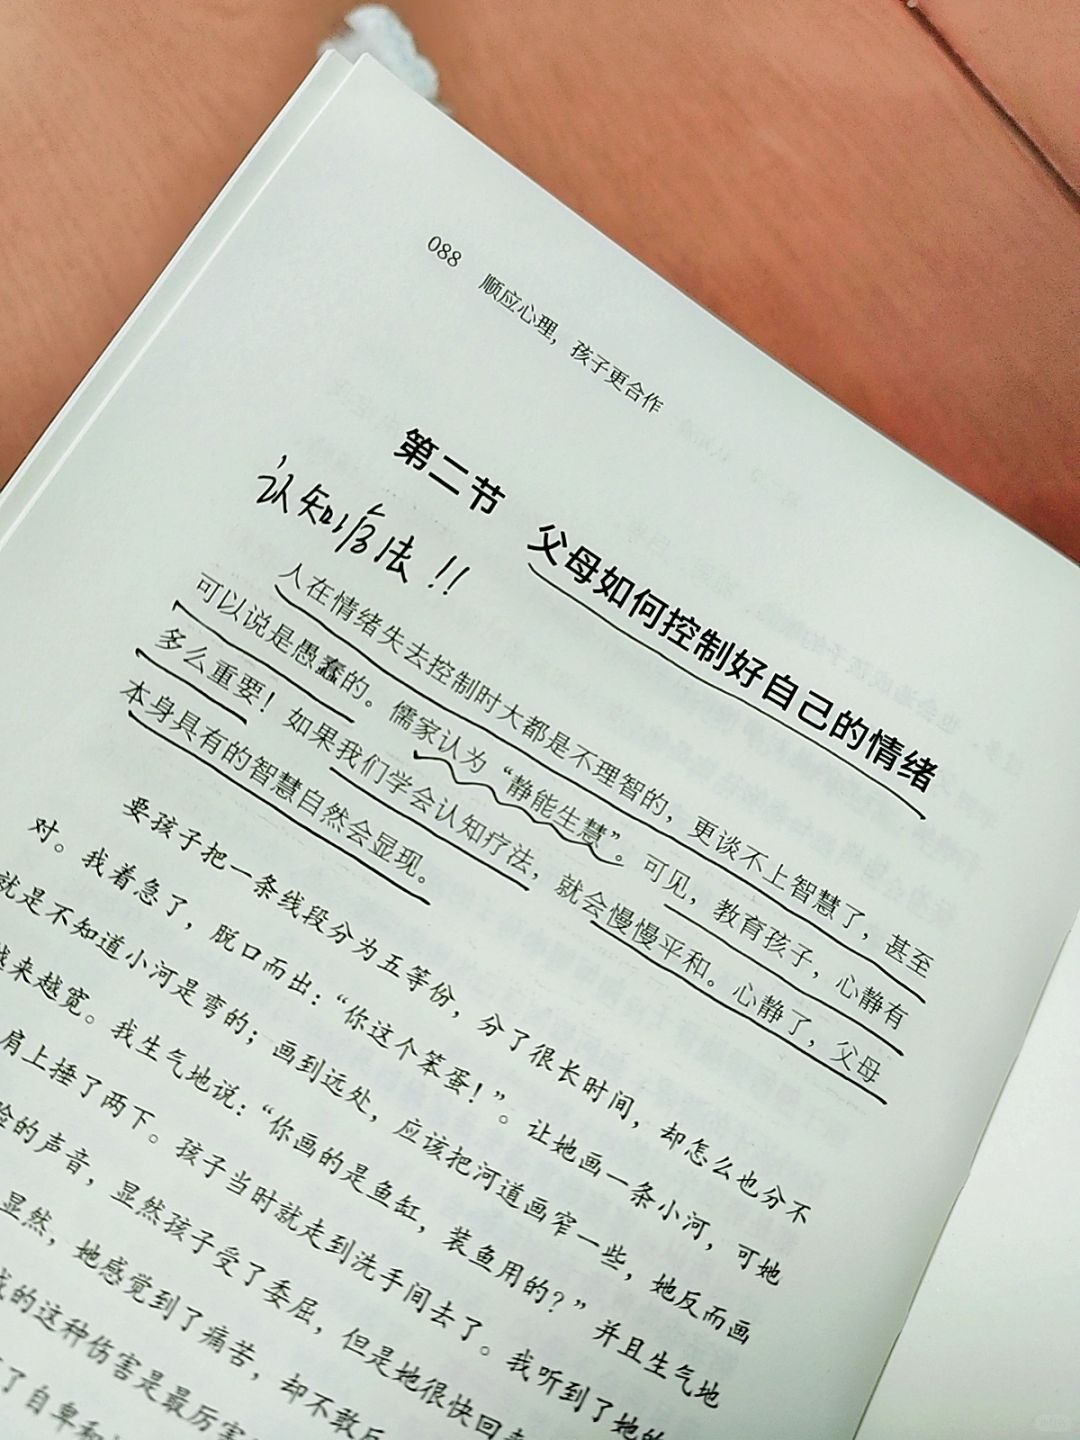 088 顺应心理，孩子更合作
第二节 父母如何控制好自己的情绪
认知疗法！！
人在情绪失去控制时大都是不理智的，更谈不上智慧了，甚至
可以说是愚蠢的。儒家认为“静能生慧”。可见，教育孩子，心静有
多么重要！如果我们学会认知疗法，就会慢慢平和。心静了，父母
本身具有的智慧自然会显现。
要孩子把一条线段分为五等份，分了很长时间，却怎么也分不
对。我着急了，脱口而出：“你这个笨蛋！”。让她画一条小河，可她
就是不知道小河是弯的；画到远处，应该把河道画窄一些，她反而画
越来越宽。我生气地说：“你画的是鱼缸，装鱼用的？”并且生气地
肩上捶了两下。孩子当时就走到洗手间去了。我听到了她的
脸的声音，显然孩子受了委屈，但是她很快回
显然，她感觉到了痛苦，却不敢反
的这种伤害是最厉害
了自卑和